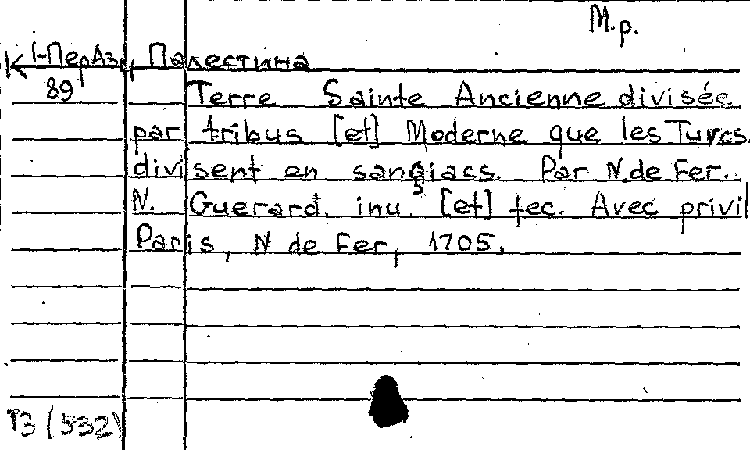 М.р.
К 1-ПерАз, Палестина
89
Terre Sainte Ancienne divisée
par tribus [et] Moderne que les Turcs
divisent en sangiacs. Par N. de Fer..
N. Guerard. inu. [et] fec. Avec privil
Paris, N de Fer, 1705.
ТЗ (532)